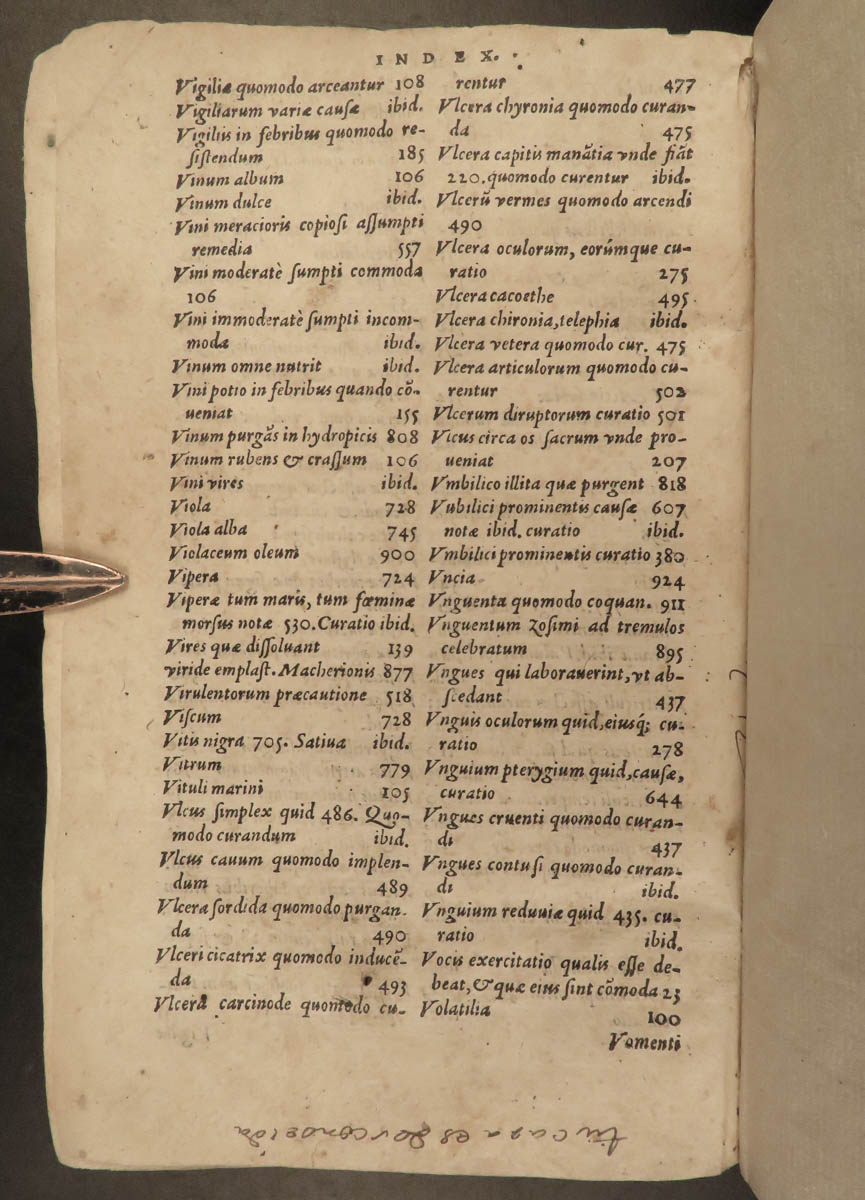 INDEX.
Vigiliæ quomodo arceantur 108
Vigiliarum variæ causæ ibid.
Vigiliis in febribus quomodo re-
sistendum 185
Vinum album 106
Vinum dulce ibid.
Vini meracioris copiosi assumpti
remedia 557
Vini moderatè sumpti commoda
106
Vini immoderatè sumpti incom-
moda ibid.
Vinum omne nutrit ibid.
Vini potio in febribus quando cõ-
ueniat 155
Vinum purgãs in hydropicis 808
Vinum rubens & crassum 106
Vini vires ibid.
Viola 728
Viola alba 745
Violaceum oleum 900
Vipera 724
Viperæ tum maris, tum fœminæ
morsus notæ 530. Curatio ibid.
Vires quæ dissoluant 139
viride emplast. Macherionis 877
Virulentorum præcautione 518
Viscum 728
Vitis nigra 705. Satiua ibid.
Vitrum 779
Vituli marini 105
Vlcus simplex quid 486. Quo-
modo curandum ibid.
Vlcus cauum quomodo implen-
dum 489
Vlcera sordida quomodo purgan-
da 490
Vlceri cicatrix quomodo inducẽ-
da 493
Vlcera carcinode quomodo cu-
rentur 477
Vlcera chyronia quomodo curan-
da 475
Vlcera capitis manãtia vnde fiãt
220. quomodo curentur ibid.
Vlcerũ vermes quomodo arcendi
490
Vlcera oculorum, eorúmque cu-
ratio 275
Vlcera cacoethe 495
Vlcera chironia, telephia ibid.
Vlcera vetera quomodo cur. 475
Vlcera articulorum quomodo cu-
rentur 502
Vlcerum diruptorum curatio 501
Vicus circa os sacrum vnde pro-
ueniat 207
Vmbilico illita quæ purgent 818
Vubilici prominentis causæ 607
notæ ibid. curatio ibid.
Vmbilici prominentis curatio 380
Vncia 924
Vnguenta quomodo coquan. 911
Vnguentum Zosimi ad tremulos
celebratum 895
Vngues qui laborauerint, vt ab-
scedant 437
Vnguis oculorum quid, eiusq; cu-
ratio 278
Vnguium pterygium quid, causæ,
curatio 644
Vngues cruenti quomodo curan-
di 437
Vngues contusi quomodo curan-
di ibid.
Vnguium reduuiæ quid 435. cu-
ratio ibid.
Vocis exercitatio qualis esse de-
beat, & quæ eius sint cõmoda 23
Volatilia 100
Vomenti